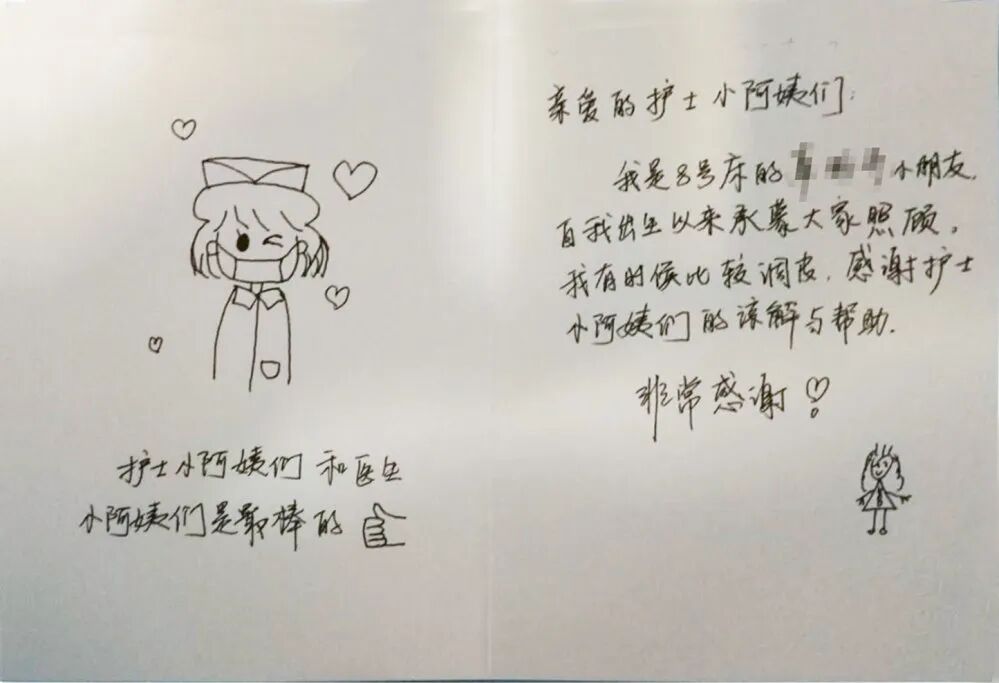 护士小阿姨们和医生
小阿姨们是最棒的
亲爱的护士小阿姨们:
我是8号床的 小朋友,
自我出生以来承蒙大家照顾。
我有时候比较调皮,感谢护士
小阿姨们的谅解与帮助.
非常感谢!